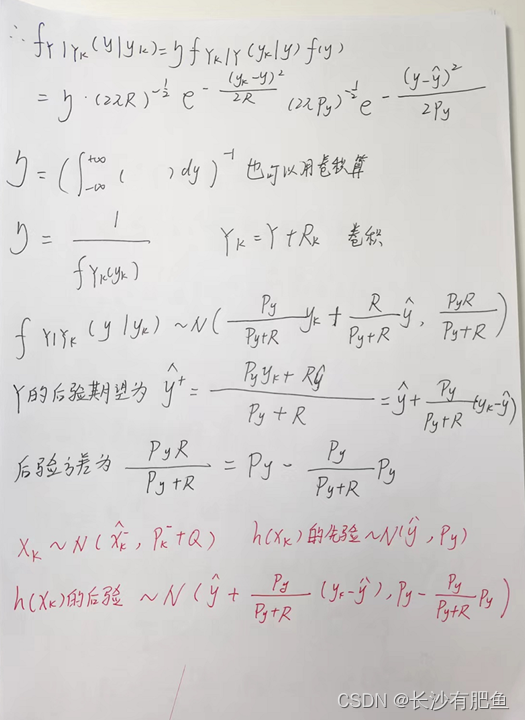 ∴ f_{Y|Y_k}(y|y_k) = η f_{Y_k|Y}(y_k|y) f(y)
= η · (2πR)^{-1/2} e^{-(y_k-y)^2/2R} (2πPy)^{-1/2} e^{-(y-ŷ)^2/2Py}
η = (∫_{-∞}^{+∞} ( ) dy)^{-1} 也可以用卷积算
η = 1/f_{Y_k}(y_k) Y_k = Y + R_k 卷积
f_{Y|Y_k}(y|y_k) ~ N(Py/(Py+R) y_k + R/(Py+R) ŷ, PyR/(Py+R))
Y的后验期望为 ŷ^+ = (Py y_k + Rŷ)/(Py+R) = ŷ + Py/(Py+R) (y_k-ŷ)
后验方差为 PyR/(Py+R) = Py - Py/(Py+R) Py
X_k ~ N(x̂_k^-, P_k^- + Q) h(X_k)的先验 ~ N(ŷ, Py)
h(X_k)的后验 ~ N(ŷ + Py/(Py+R) (y_k-ŷ), Py - Py/(Py+R) Py)
CSDN @长沙有肥鱼